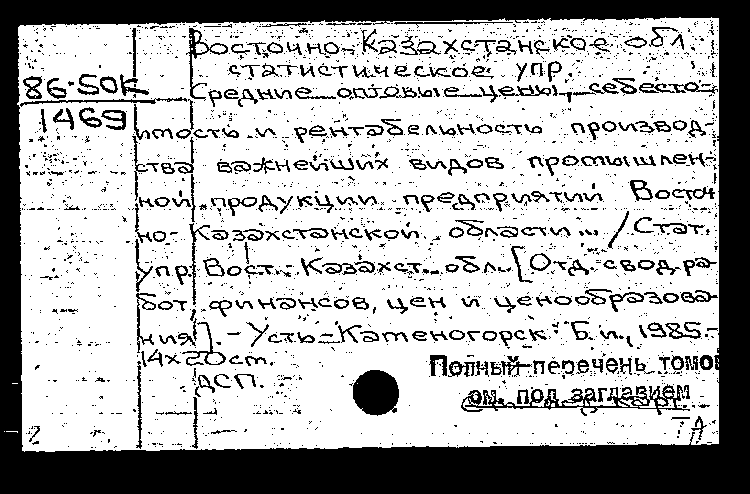 Восточно-Казахстанское обл.
статистическое упр.
86-50К
1469
Средние оптовые цены, себесто-
имость и рентабельность производ-
ства важнейших видов промышлен-
ной продукции предприятий Восточ
но-Казахстанской области... / Стат.
упр. Вост.-Казахст. обл. [Отд. свод. ра-
бот, финансов, цен и ценообразова-
ния]. - Усть-Каменогорск: Б.и., 1985.-
14х20 ст.
ДСП.
Полный перечень томо
см. под заглавием
карт.
2
ТА